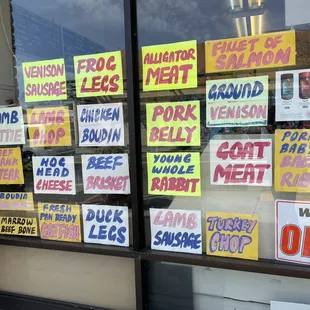 VENISON
SAUSAGE
FROG
LEGS
ALLIGATOR
MEAT
FILLET OF
SALMON
LAMB
LAMB
CHOP
CHICKEN
BOUDIN
PORK
BELLY
GROUND
VENISON
BEEF
HOG
HEAD
CHEESE
BEEF
BRISKET
YOUNG
WHOLE
RABBIT
GOAT
MEAT
PORK
BABY
MARROW
BEEF BONE
FRESH
PAN READY
CATFISH
DUCK
LEGS
LAMB
SAUSAGE
TURKEY
CHOP